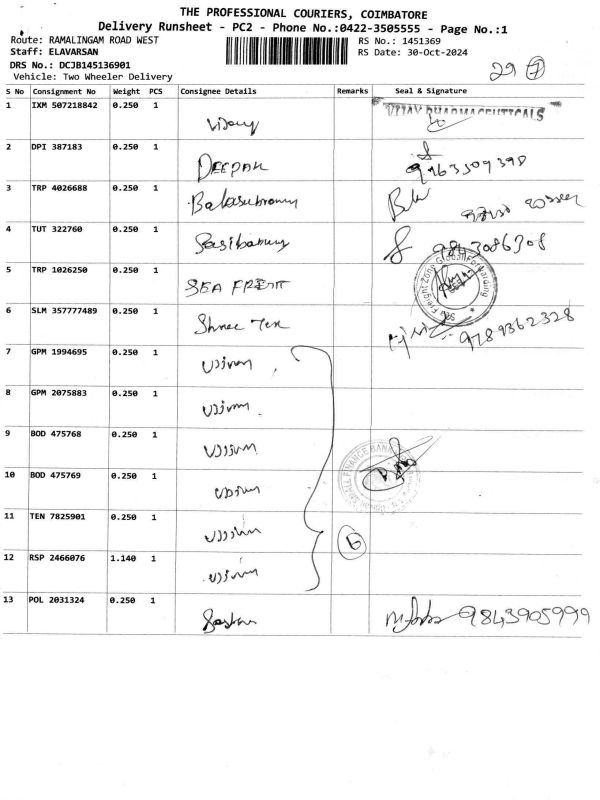 THE PROFESSIONAL COURIERS, COIMBATORE
Delivery Runsheet - PC2 - Phone No.:0422-3505555 - Page No.:1
Route: RAMALINGAM ROAD WEST
RS No.: 1451369
Staff: ELAVARSAN
RS Date: 30-Oct-2024
DRS No.: DCJB145136901
Vehicle: Two Wheeler Delivery
29 7
S No Consignment No Weight PCS Consignee Details Remarks Seal & Signature
1 IXM 507218842 0.250 1 Vijay VIJAY PHARMACEUTICALS
2 DPI 387183 0.250 1 DEEPAK 9963509398
3 TRP 4026688 0.250 1 Balasubramany
4 TUT 322760 0.250 1 Sasibanuny 9843086308
5 TRP 1026250 0.250 1 SEA FREIGHT Sea Freight Zone Global Forwarding
6 SLM 357777489 0.250 1 Shree Tex 9789362328
7 GPM 1994695 0.250 1
8 GPM 2075883 0.250 1
9 BOD 475768 0.250 1 SMALL FINANCE BANK
10 BOD 475769 0.250 1
11 TEN 7825901 0.250 1
6
12 RSP 2466076 1.140 1
13 POL 2031324 0.250 1 9843905999